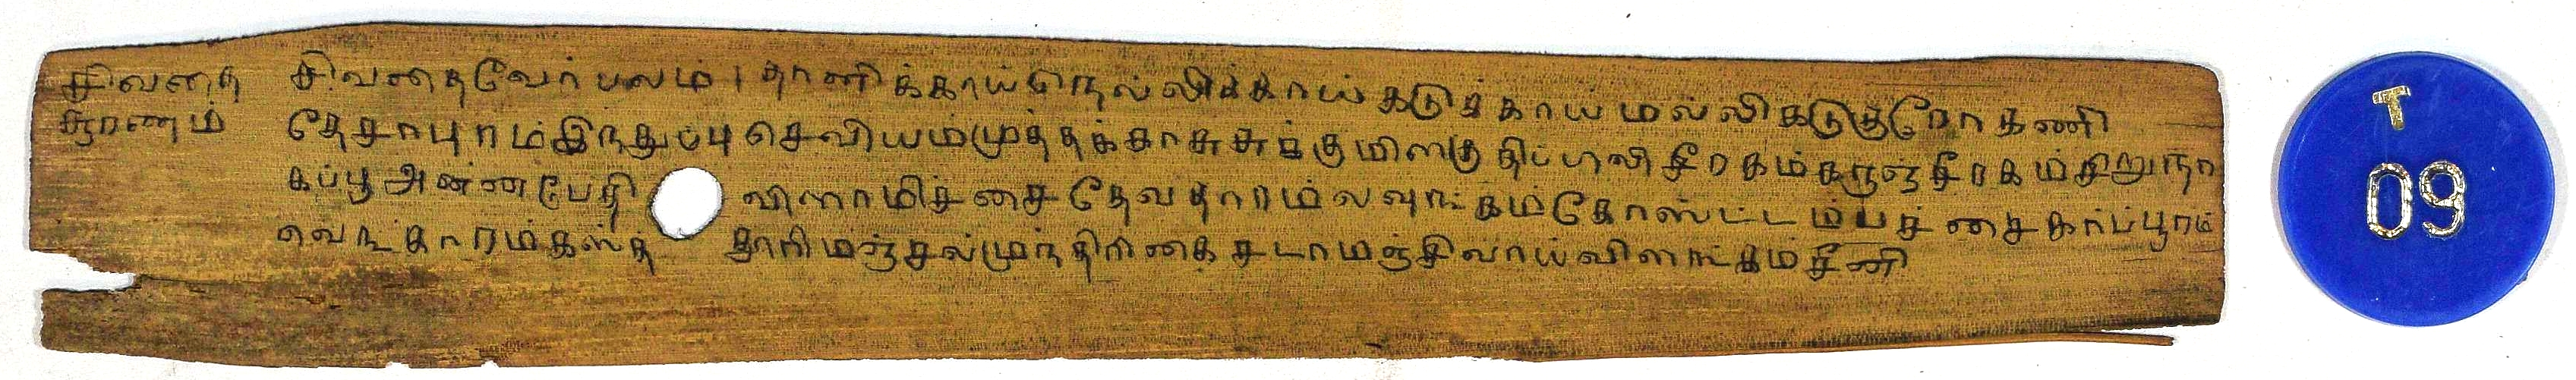 சிவதை சிவதைவேர் பலம் । தானிக்காய் நெல்லிக்காய் கடுக்காய் மல்லி கடுகுரோகணி
சூரணம் தேசாபுரம் இந்துப்பு செவியம் முத்தக்காசு சுக்கு மிளகு திப்பலி சீரகம் கருஞ்சீரகம் சிறுநா
கப்பூ அன்னபேதி விளாமிச்சை தேவதாரம் லவுங்கம் கோஸ்ட்டம் பச்சை கற்ப்பூரம்
வெங்காரம் கஸ்தூரி மஞ்சல் முந்திரிகை சடாமஞ்சி வாய்விளங்கம் சீனி
T
09